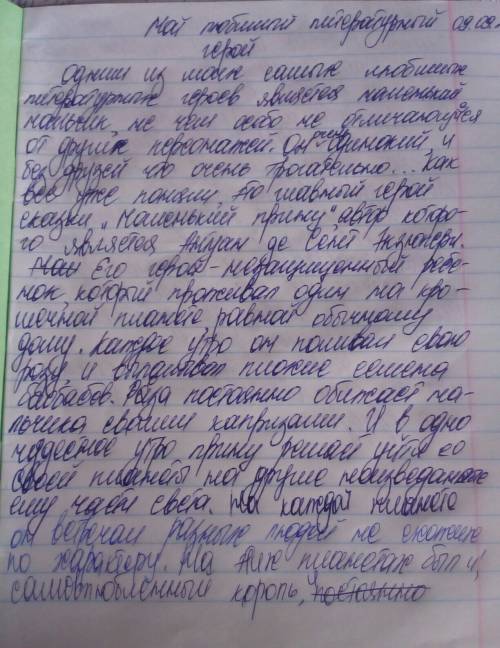 Мой любимый литературный 09.09.
герой
Одним из моих самых любимых
литературных героев является маленький
мальчик, не чем особо не отличающийся
от других персонажей. Он очень одинокий и
без друзей что очень трогательно... Как
все уже поняли, это главный герой
сказки „Маленький принц", автор которо-
го является Антуан де Сент Экзюпери.
Его герой-незащищённый ребе-
нок, который проживал один на кро-
шечной планете, равной обычному
дому. Каждое утро он поливал свою
розу и выпалывал плохие семена
баобабов. Роза постоянно обижает ма-
льчика своими капризами. И в одно
чудесное утро принц решает уйти со
своей планеты на другие неизведанные
ему части света. На каждой планете
он встречал разных людей не схожих
по характеру. На этих планетах был и
самовлюбленный король, постоянно